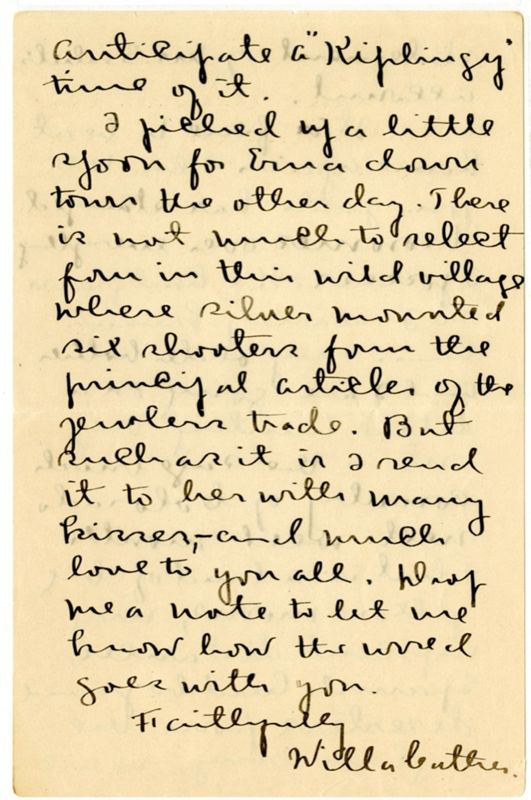 anticipate a "Kiplingy"
time of it.
I picked up a little
spoon for Erna down
town the other day. There
is not much to select
fom in this wild village
where silver mounted
six shooters form the
principal articles of the
jewlers trade. But
such as it is I send
it to her with many
kisses,—and much
love to you all. Drop
me a note to let me
know how the world
goes with you.
Faithfully
Willa Cather.